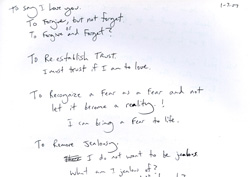 To say I love you.
1-7-07
To Forgive, but not forget.
or
To Forgive and Forget?
To Re-establish Trust.
I must trust if I am to love.
To Recognize a Fear as a Fear and not
let it become a reality!
I can bring a Fear to life.
To Remove Jealousy.
I do not want to be jealous
What am I jealous of?